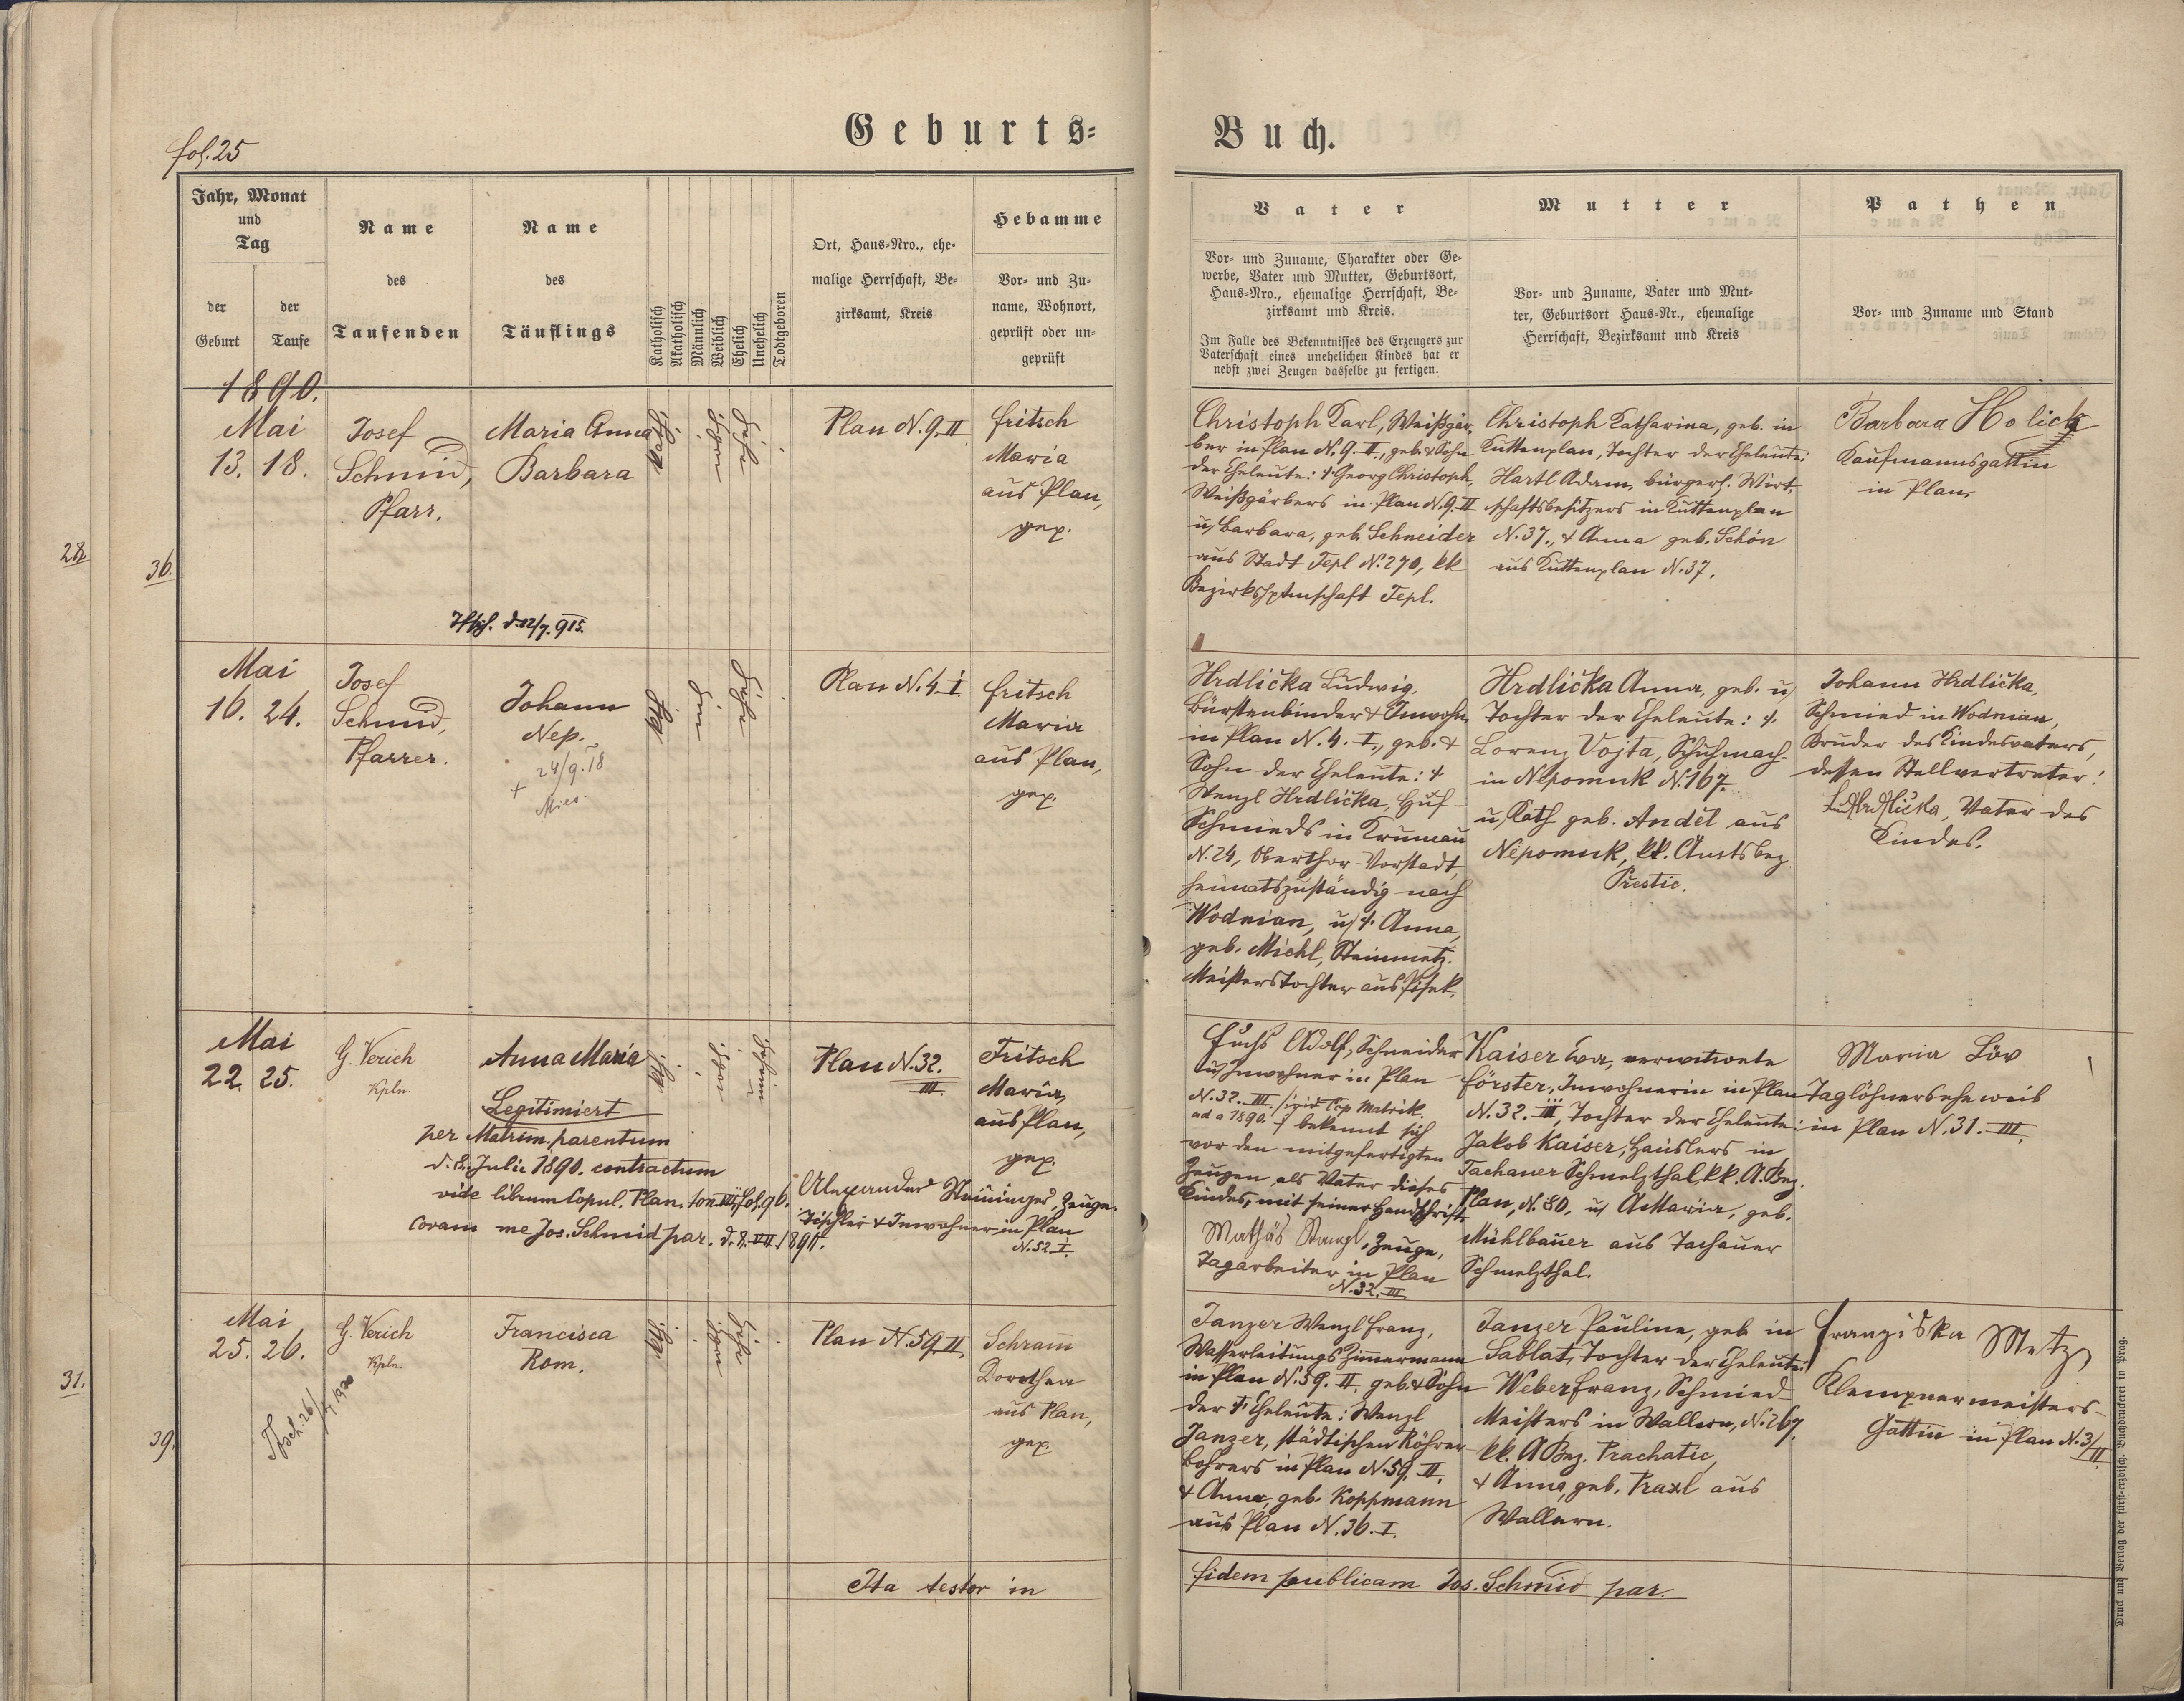 Geburts-
Buch.
fol. 25
Jahr, Monat
und
Tag
der
Geburt
der
Taufe
Name
des
Taufenden
Name
des
Täuflings
Katholisch
Akatholisch
Männlich
Weiblich
Ehelich
Unehelich
Todtgeboren
Ort, Haus-Nro., ehe-
malige Herrschaft, Be-
zirksamt, Kreis
Hebamme
Vor- und Zu-
name, Wohnort,
geprüft oder un-
geprüft
Vater
Vor- und Zuname, Charakter oder Ge-
werbe, Vater und Mutter, Geburtsort,
Haus-Nro., ehemalige Herrschaft, Be-
zirksamt und Kreis.
Im Falle des Bekenntnisses des Erzeugers zur
Vaterschaft eines unehelichen Kindes hat er
nebst zwei Zeugen dasselbe zu fertigen.
Mutter
Vor- und Zuname, Vater und Mut-
ter, Geburtsort Haus-Nr., ehemalige
Herrschaft, Bezirksamt und Kreis
Pathen
Vor- und Zuname und Stand
1890.
Mai
13. 18.
Josef
Schmid,
Pfarr.
Maria Anna
Barbara
Plan N. 9. II
Fritsch
Maria
aus Plan,
gep.
Christoph Karl, Weißgär-
ber in Plan N. 9. II., geb. & Sohn
der Eheleute: † Georg Christoph,
Weißgärbers in Plan N. 9. II
u. Barbara, geb. Schneider
aus Stadt Tepl N. 270, kk
Bezirkshptmschaft Tepl.
Christoph Katharina, geb. in
Kuttenplan, Tochter der Eheleute:
Hartl Adam, bürgerl. Wirt-
schaftsbesitzers in Kuttenplan
N. 37., & Anna geb. Schön
aus Kuttenplan N. 37.
Barbara Holick
Kaufmannsgattin
in Plan.
28
36.
d. 12/7. 915.
Mai
16. 24.
Josef
Schmid,
Pfarrer.
Johann
Nep.
+ 24/9. 18
Mies.
Plan N. 4. I
Fritsch
Maria
aus Plan,
gep.
Hrdlička Ludwig,
Bürstenbinder & Inwohn.
in Plan N. 4. I., geb. &
Sohn der Eheleute: †
Wenzl Hrdlička, Huf-
Schmieds in Krumau
N. 24, Oberthor-Vorstadt,
heimatszuständig nach
Wodnian, u. †. Anna,
geb. Michl, Steinmetz-
Meisterstochter aus Pisek.
Hrdlička Anna, geb. u.
Tochter der Eheleute: †.
Lorenz Vojta, Schuhmach.
in Nepomuk N. 167.
u. Kath geb. Anděl aus
Nepomuk, kk. Amtsbez.
Přestic.
Johann Hrdlička,
Schmied in Wodnian,
Bruder des Kindesvaters,
dessen Stellvertreter:
Lud. Hrdlička, Vater des
Kindes.
Mai
22. 25.
G. Verich
Kpln.
Anna Maria
Legitimiert
per Matrim. parentum
d. 8. Julii 1890. contractum
vide librum Copul. Plan. tom. VII. fol. 96.
Coram me Jos. Schmid par. d. 8. VII 1890.
Plan N. 32.
III.
Fritsch
Maria,
aus Plan,
gep.
Alexander Steininger, Zeuge.
Tischler & Inwohner in Plan
N. 52. I.
Fuchs Adolf, Schneider
u. Inwohner in Plan
N. 32. III. / vide Cop Matrik.
ad a 1890. / bekennt sich
vor den mitgefertigten
Zeugen als Vater dieses
Kindes, mit seiner Handschrift.
Mathäs Stangl, Zeuge,
Tagarbeiter in Plan
N. 32. III.
Kaiser Eva, verwitwete
Förster, Inwohnerin in Plan
N. 32. III, Tochter der Eheleute:
Jakob Kaiser, Häuslers in
Tachauer Schmelzthal, kk. A. Bez.
Plan, N. 80, u. A Maria, geb.
Mühlbauer aus Tachauer
Schmelzthal.
Maria Löv
Taglöhnersehe weib
in Plan N. 31. III.
Mai
25. 26.
G. Verich
Kpln.
Francisca
Rom.
Plan N. 59. II.
Schram
Dorothea
aus Plan,
gep.
Janzer Wenzl Franz,
Wasserleitungs Zimmermann
in Plan N. 59. II. geb. & Sohn
der † Eheleute: Wenzl
Janzer, städtischen Röhren
bohrers in Plan N. 59. II.
& Anna, geb. Koppmann
aus Plan N. 36. I.
Janzer Pauline, geb. in
Sablat, Tochter der Eheleute:
Weber Franz, Schmied-
Meisters in Wallern, N. 267.
kk. A Bez. Prachatic,
& Anna, geb. Praxl aus
Wallern.
Franziska Metz
Klempnermeisters-
Gattin in Plan N. 3/II.
31.
39.
Ita testor in
fidem publicam Jos. Schmid par.
Druck und Verlag der fürst-erzbisch. Buchdruckerei in Prag.